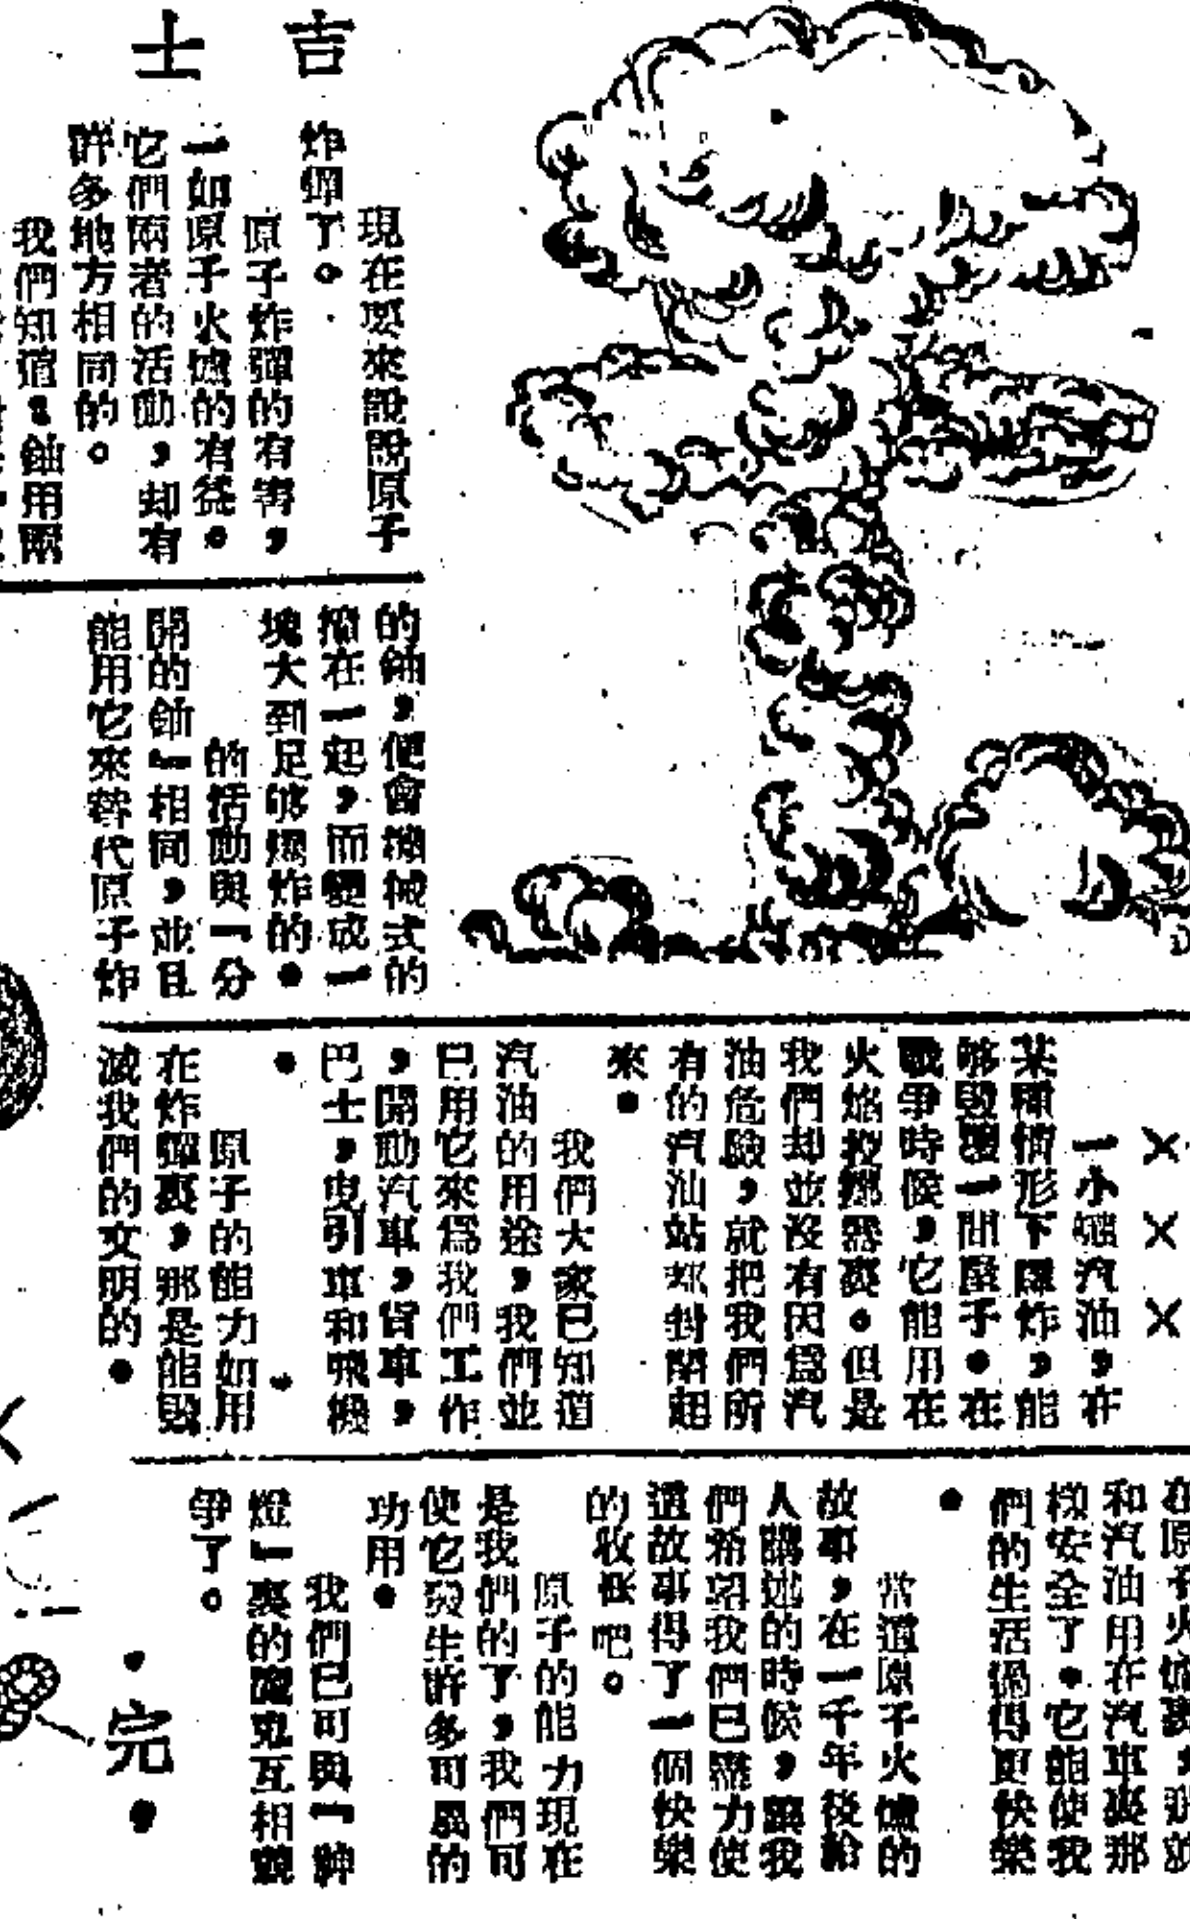 吉士
現在要來說說原子
炸彈了。
原子炸彈的有害，
一如原子火爐的有益。
它們兩者的活動，却有
許多地方相同的。
我們知道：鈾用兩
的鈾，便會機械式的
擠在一起，而變成一
塊大到足够爆炸的。
的活動與「分
開的鈾」相同，並且
能用它來替代原子炸
×××
一小罐汽油，在
某種情形下爆炸，能
够毀壞一間屋子。在
戰爭時候，它能用在
火焰投擲器裏。但是
我們却並沒有因爲汽
油危險，就把我們所
有的汽油站都封閉起
來。
我們大家已知道
汽油的用途，我們並
已用它來爲我們工作
，開動汽車，貨車，
巴士，曳引車和飛機
。
原子的能力如用
在炸彈裏，那是能毀
滅我們的文明的。
在原子火爐裏，
和汽油用在汽車裏那
樣安全了。它能使我
們的生活過得更快樂
。
當這原子火爐的
故事，在一千年後給
人講述的時候，讓我
們希望我們已盡力使
這故事得了一個快樂
的收塲吧。
原子的能力現在
是我們的了，我們可
使它發生許多可異的
功用。
我們已可與「神
燈」裏的魔鬼互相競
爭了。
·完·